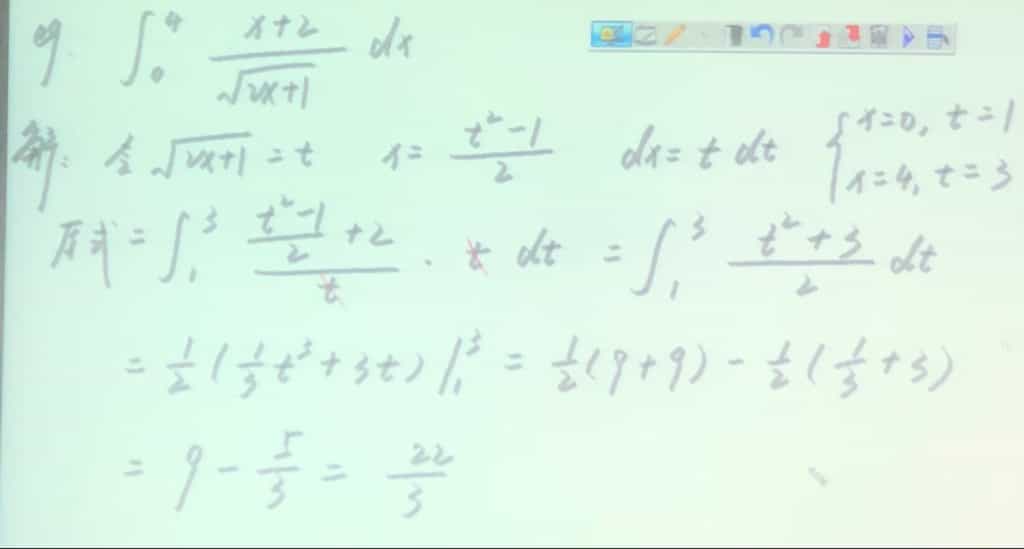 eg. ∫₀⁴ (x+2)/√(2x+1) dx
解: 令 √(2x+1) = t x = (t²-1)/2 dx = t dt { x=0, t=1 x=4, t=3
原式 = ∫₁³ ((t²-1)/2 + 2)/t · t dt = ∫₁³ (t²+3)/2 dt
= 1/2 (1/3 t³ + 3t) |₁³ = 1/2 (9+9) - 1/2 (1/3 + 3)
= 9 - 5/3 = 22/3